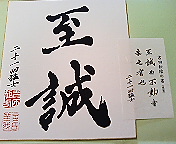 至誠
二十一回猛士
至誠而不動者
未之有也
二十一回猛士